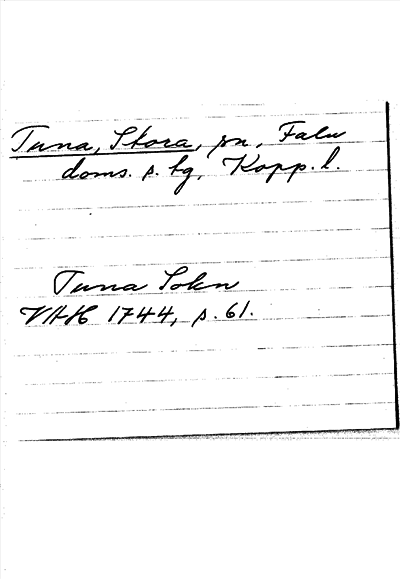 Tuna, Stora, sn, Falu
doms. s. tg, Kopp. l.
Tuna Sokn
VAH 1744, s. 61.